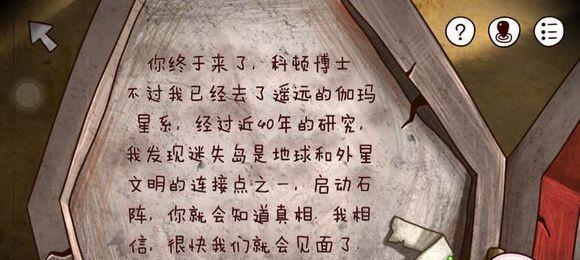 你终于来了，科顿博士
不过我已经去了遥远的伽玛
星系，经过近40年的研究，
我发现迷失岛是地球和外星
文明的连接点之一，启动石
阵，你就会知道真相.我相
信，很快我们就会见面了.
?